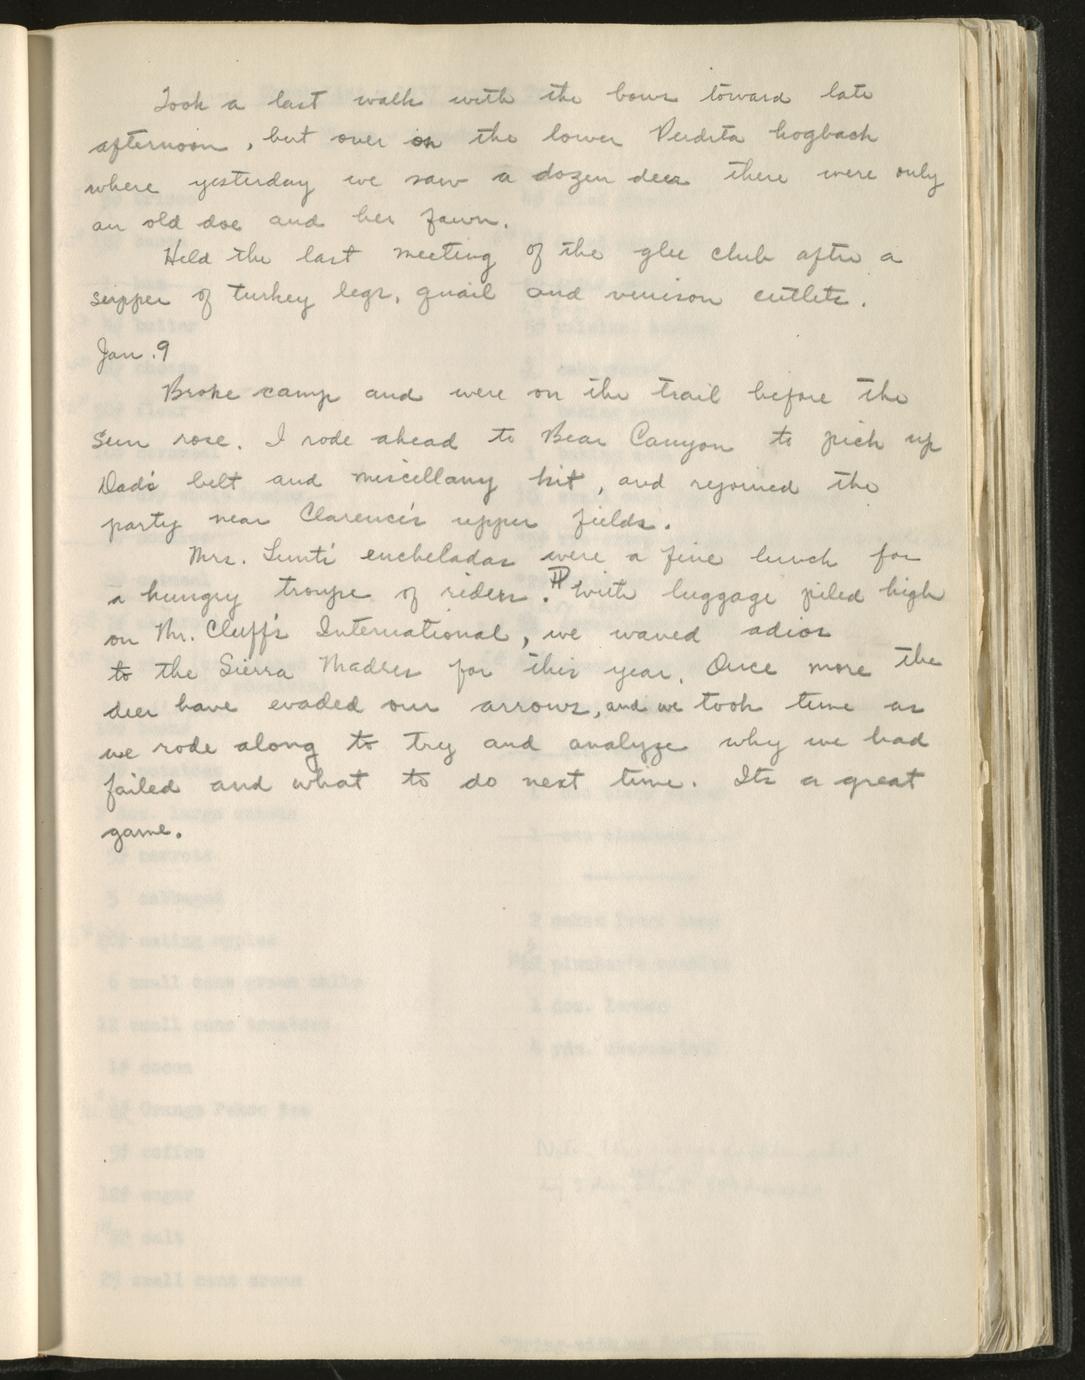 Took a last walk with the bows toward late
afternoon, but over on the lower Perdita hogback
where yesterday we saw a dozen deer there were only
an old doe and her fawn.
Held the last meeting of the glee club after a
supper of turkey legs, quail and venison cutlets.
Jan. 9
Broke camp and were on the trail before the
sun rose. I rode ahead to Bear Canyon to pick up
Dad's belt and miscellany kit, and rejoined the
party near Clarence's upper fields.
Mrs. Lunt's encheladas were a fine lunch for
a hungry troupe of riders. ¶ With luggage piled high
on Mr. Cluff's International, we waved adios
to the Sierra Madres for this year. Once more the
deer have evaded our arrows, and we took time as
we rode along to try and analyze why we had
failed and what to do next time. Its a great
game.